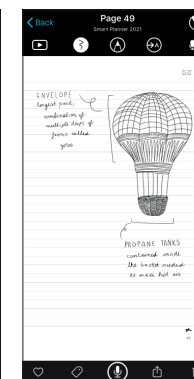 Back
Page 49
Smart Planner 2021
ENVELOPE
longest part,
combination of
multiple strips of
fabric called
gores
PROPANE TANKS
contained inside
the basket needed
to make hot air